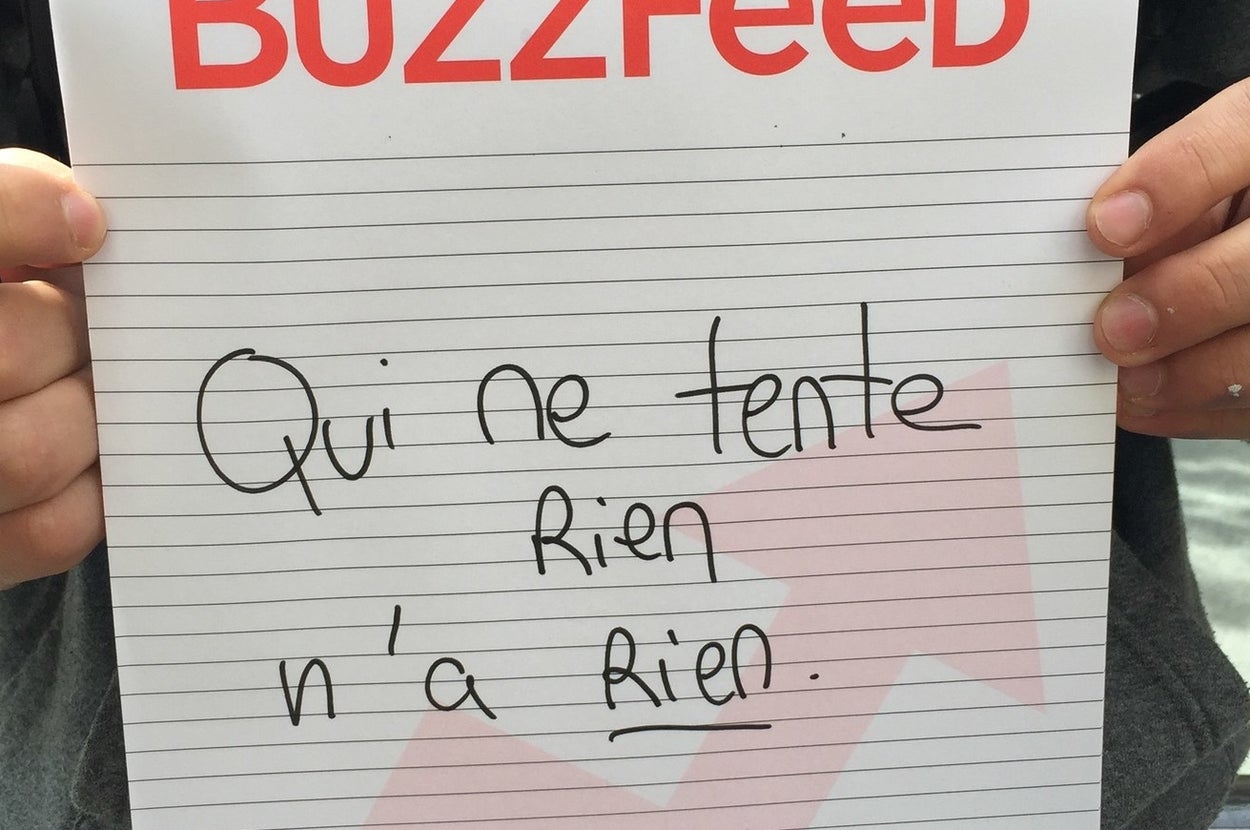 BuzzFeeD
Qui ne tente
Rien
n'a Rien.